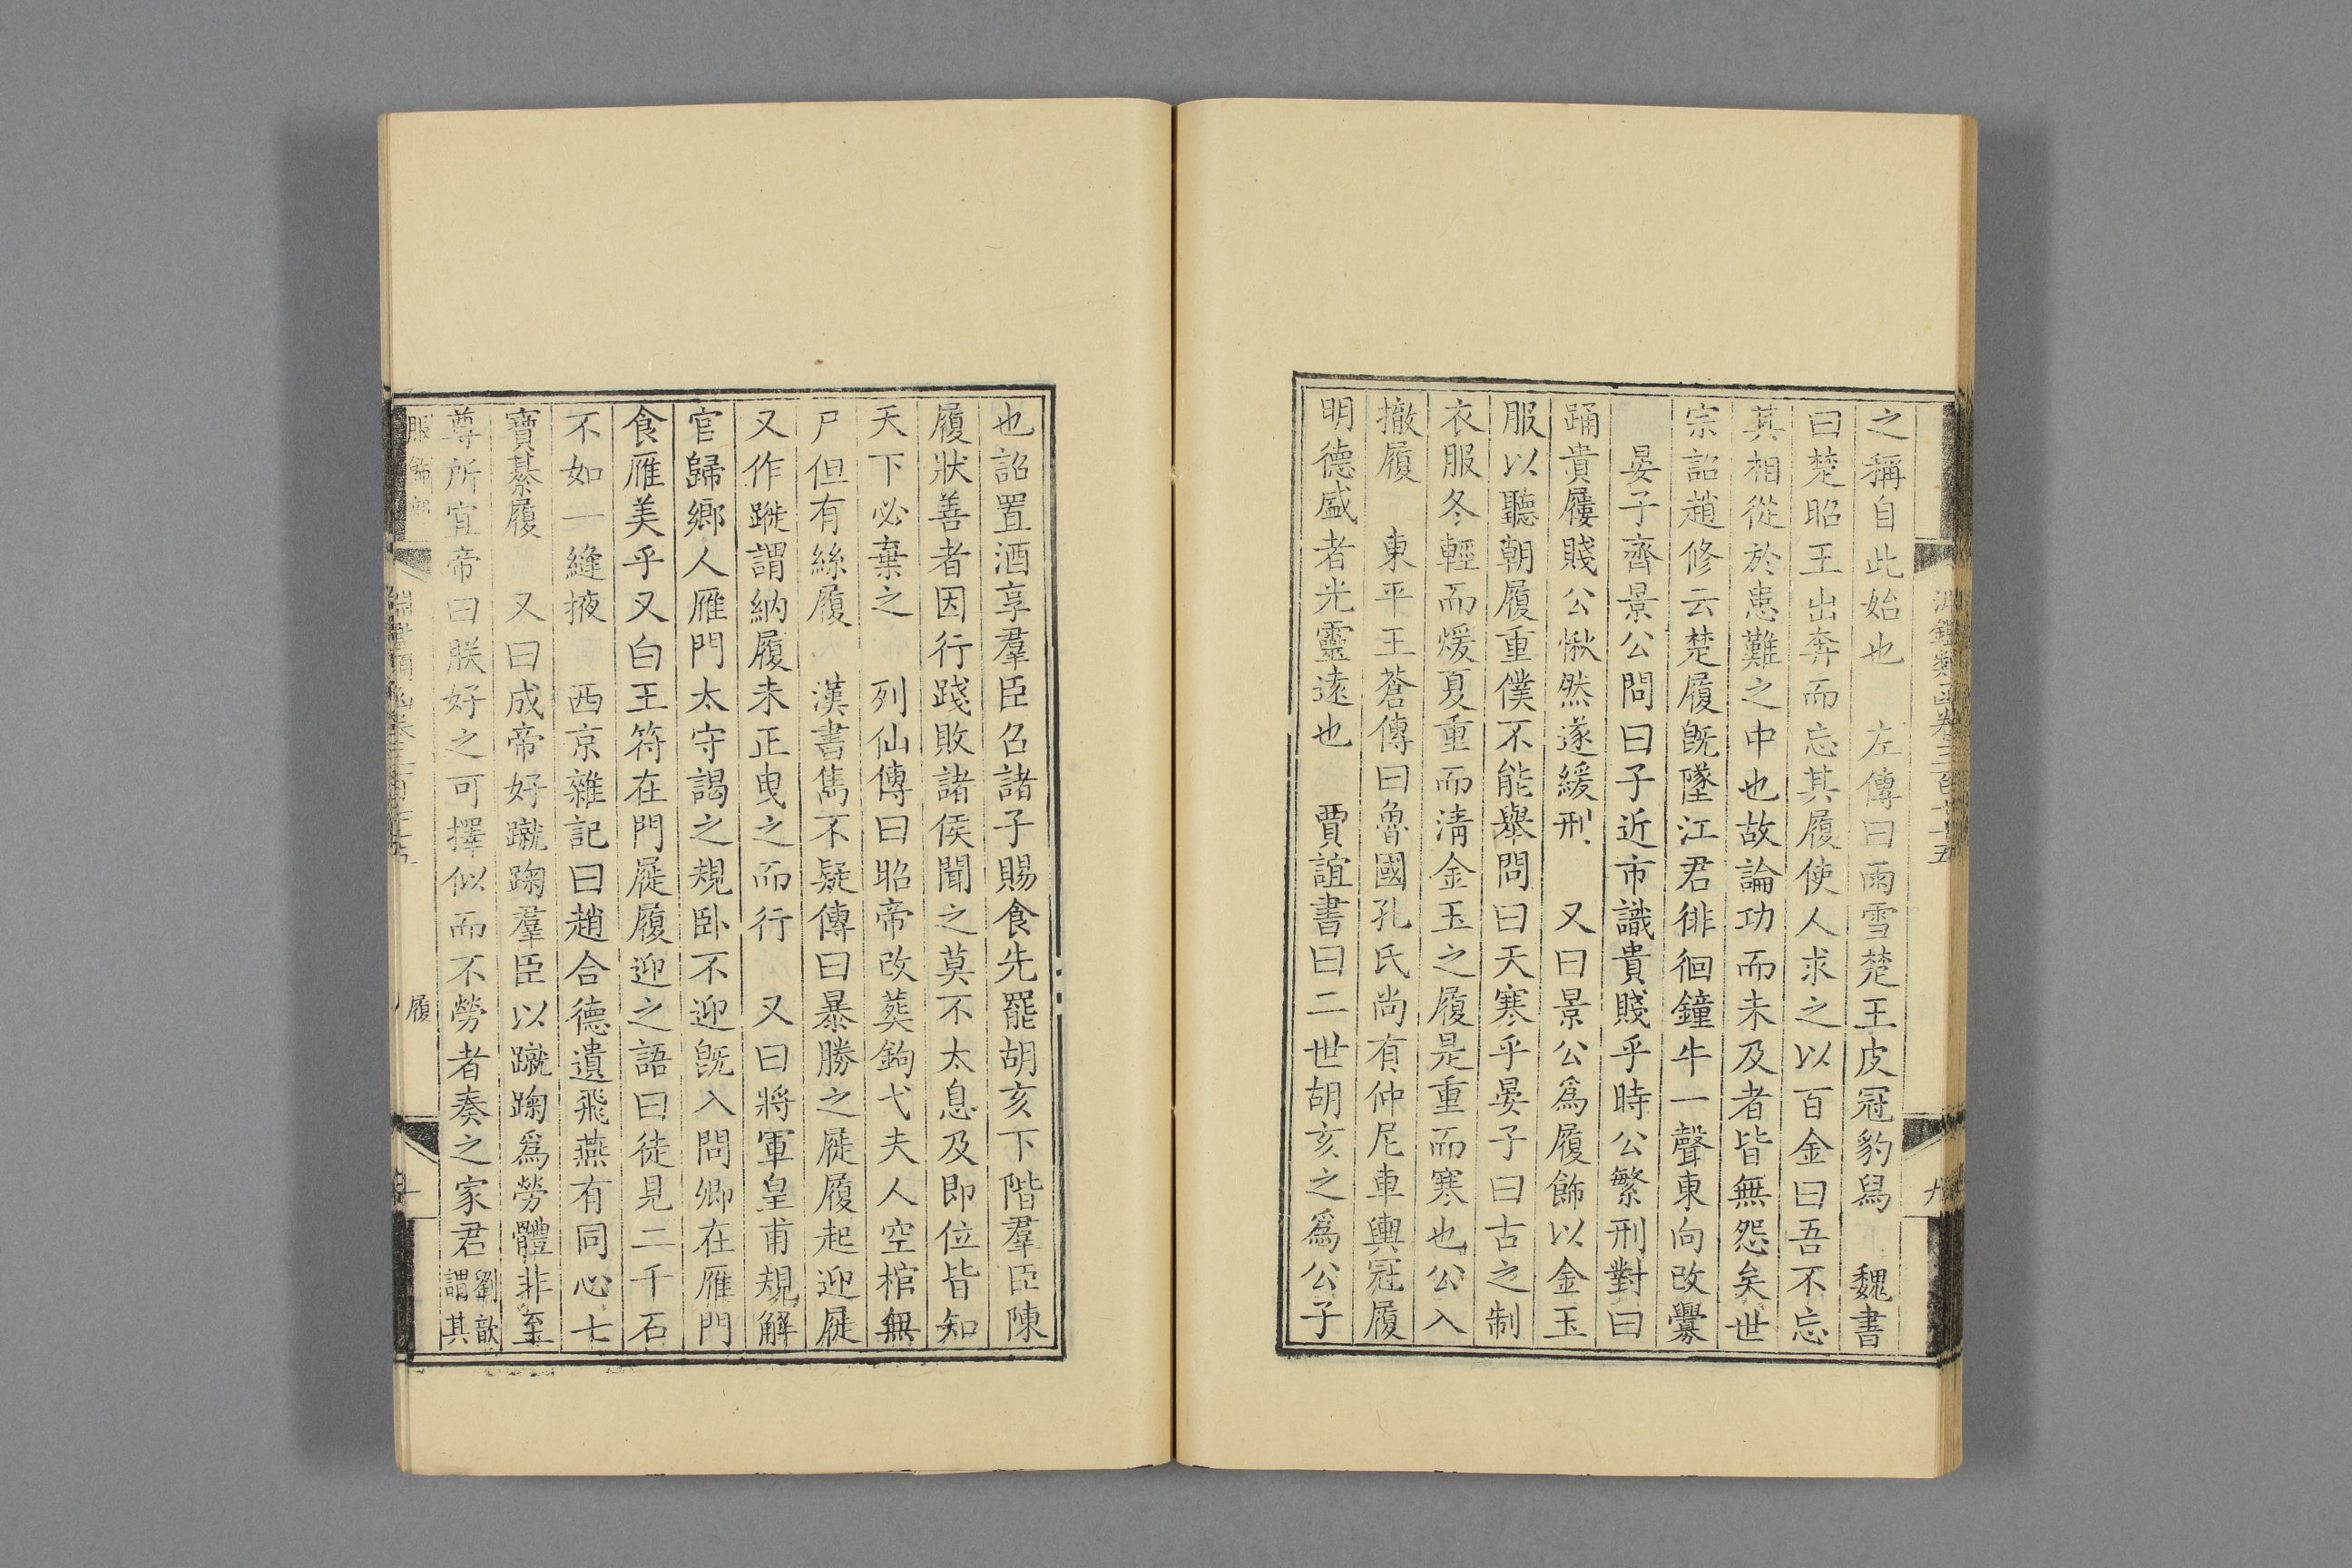 之稱自此始也　左傳曰雨雪楚王皮冠豹舄　魏書
曰楚昭王出奔而忘其履使人求之以百金曰吾不忘
其相從於患難之中也故論功而未及者皆無怨矣世
宗詔趙修云楚履旣墜江君徘徊鐘牛一聲東向改釁
晏子齊景公問曰子近市識貴賤乎時公繁刑對曰
踊貴屨賤公愀然遂緩刑　又曰景公爲履飾以金玉
服以聽朝履重僕不能舉問曰天寒乎晏子曰古之制
衣服冬輕而煖夏重而淸金玉之履是重而寒也公入
撤履　東平王蒼傳曰魯國孔氏尚有仲尼車輿冠履
明德盛者光靈遠也　賈誼書曰二世胡亥之爲公子
也詔置酒享羣臣召諸子賜食先罷胡亥下階羣臣陳
履狀善者因行踐敗諸侯聞之莫不太息及即位皆知
天下必棄之　列仙傳曰昭帝改葬鉤弋夫人空棺無
尸但有絲履　漢書雋不疑傳曰暴勝之屣履起迎屣
又作蹝謂納履未正曳之而行　又曰將軍皇甫規解
官歸鄉人雁門太守謁之規卧不迎旣入問卿在雁門
食雁美乎又白王符在門屣履迎之語曰徒見二千石
不如一縫掖　西京雜記曰趙合德遺飛燕有同心七
寶綦履　又曰成帝好蹴踘羣臣以蹴踘爲勞體非至
尊所宜帝曰朕好之可擇似而不勞者奏之家君劉歆
謂其
服飾部
履